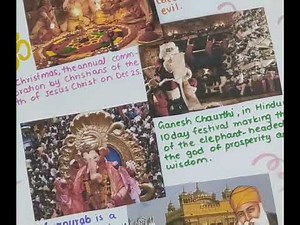 evil.
Christmas, the annual comm-
oration by Christians of the
th of Jesus Christ on Dec 25
Ganesh Chaurthi, in Hindu
10 day festival marking th
of the elephant-headed
the god of prosperity a
wisdom.
is a